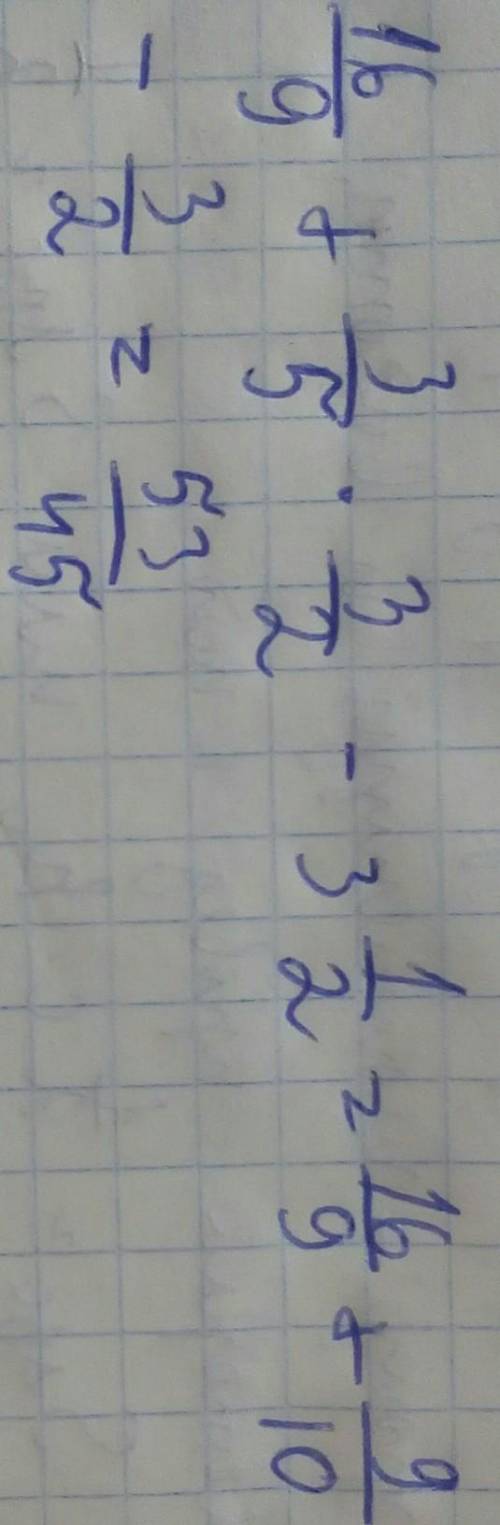 16/9 + 3/5 · 3/2 - 3 1/2 = 16/9 + 9/10
- 3/2 = 53/45